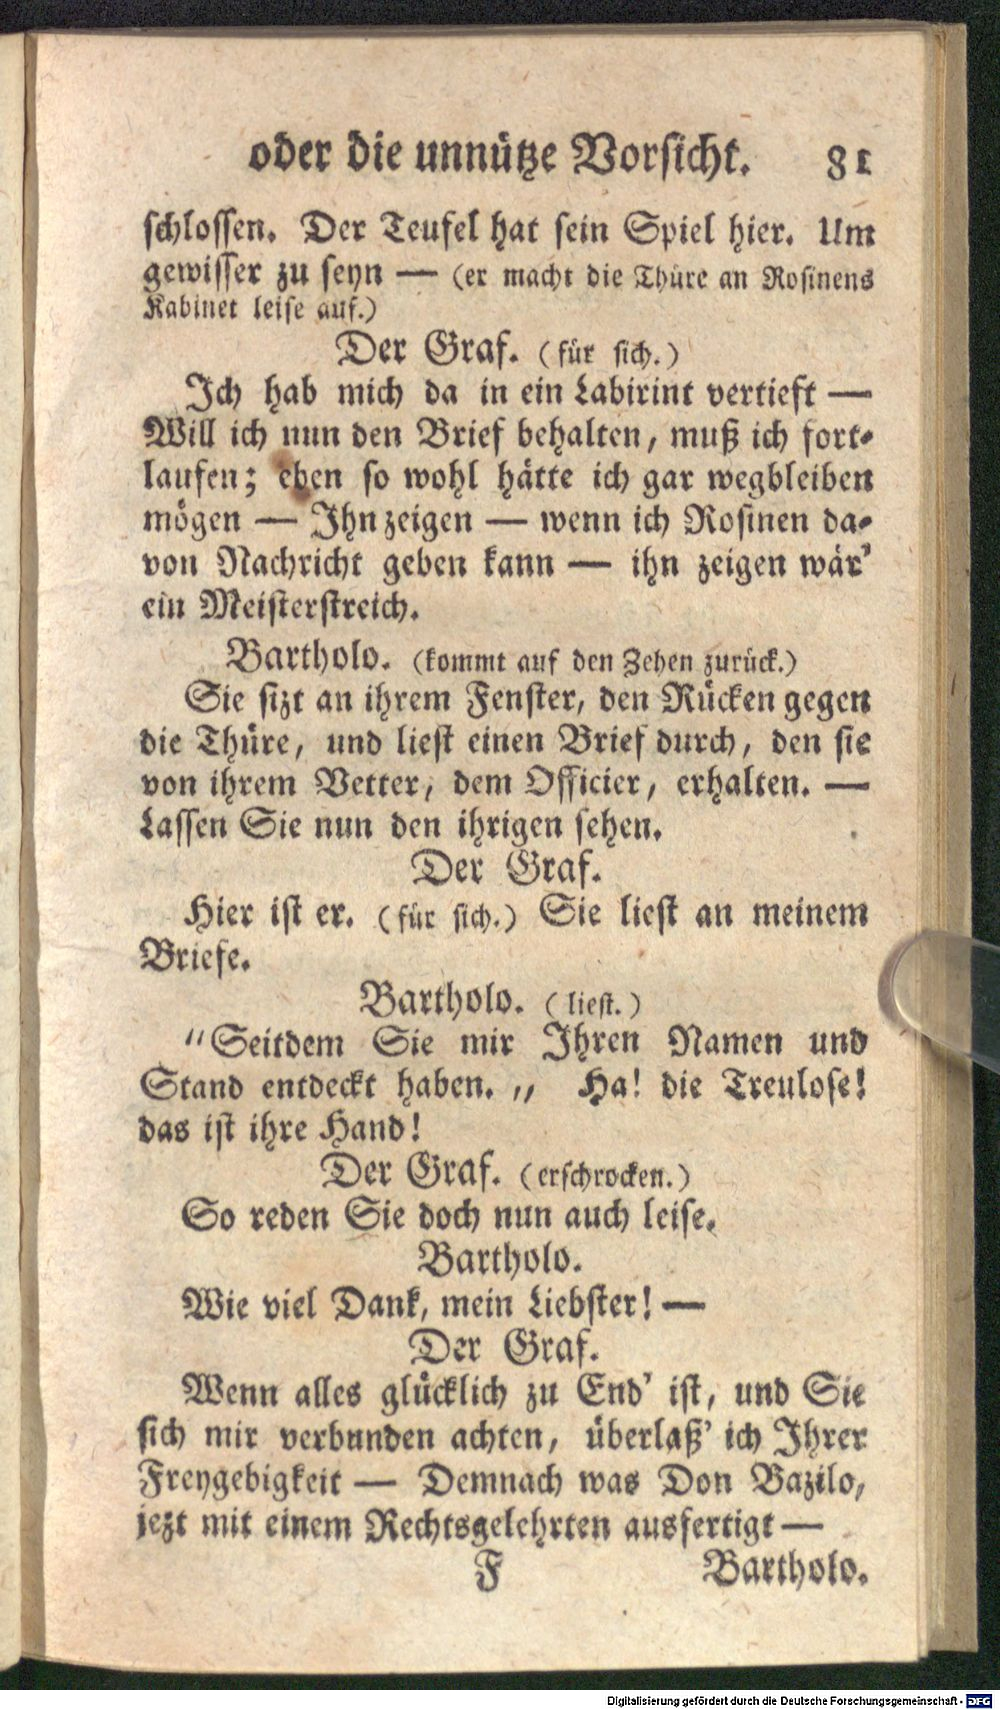 oder die unnütze Vorsicht. 81
schlossen. Der Teufel hat sein Spiel hier. Um
gewisser zu seyn — (er macht die Thüre an Rosinens
Kabinet leise auf.)
Der Graf. (für sich.)
Ich hab mich da in ein Labirint vertieft —
Will ich nun den Brief behalten, muß ich fort-
laufen; eben so wohl hätte ich gar wegbleiben
mögen — Ihn zeigen — wenn ich Rosinen da-
von Nachricht geben kann — ihn zeigen wär'
ein Meisterstreich.
Bartholo. (kommt auf den Zehen zurück.)
Sie sizt an ihrem Fenster, den Rücken gegen
die Thüre, und liest einen Brief durch, den sie
von ihrem Vetter, dem Officier, erhalten. —
Lassen Sie nun den ihrigen sehen.
Der Graf.
Hier ist er. (für sich.) Sie liest an meinem
Briefe.
Bartholo. (liest.)
"Seitdem Sie mir Ihren Namen und
Stand entdeckt haben. „ Ha! die Treulose!
das ist ihre Hand!
Der Graf. (erschrocken.)
So reden Sie doch nun auch leise.
Bartholo.
Wie viel Dank, mein Liebster! —
Der Graf.
Wenn alles glücklich zu End' ist, und Sie
sich mir verbunden achten, überlaß' ich Ihrer
Freygebigkeit — Demnach was Don Bazilo,
jezt mit einem Rechtsgelehrten ausfertigt —
F Bartholo.
Digitalisierung gefördert durch die Deutsche Forschungsgemeinschaft - DFG